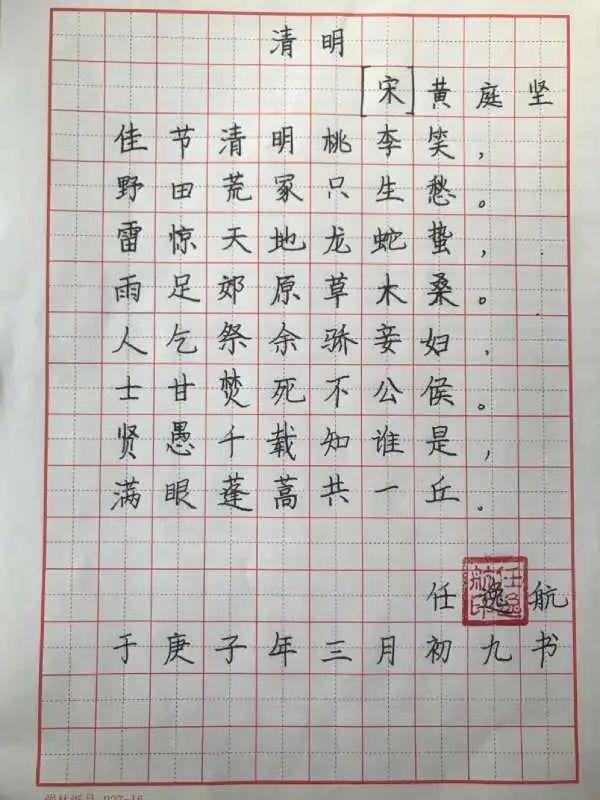 清明
[宋]黄庭坚
佳节清明桃李笑，
野田荒冢只生愁。
雷惊天地龙蛇蛰，
雨足郊原草木桑。
人乞祭余骄妾妇，
士甘焚死不公侯。
贤愚千载知谁是，
满眼蓬蒿共一丘。
任逸航
于庚子年三月初九书